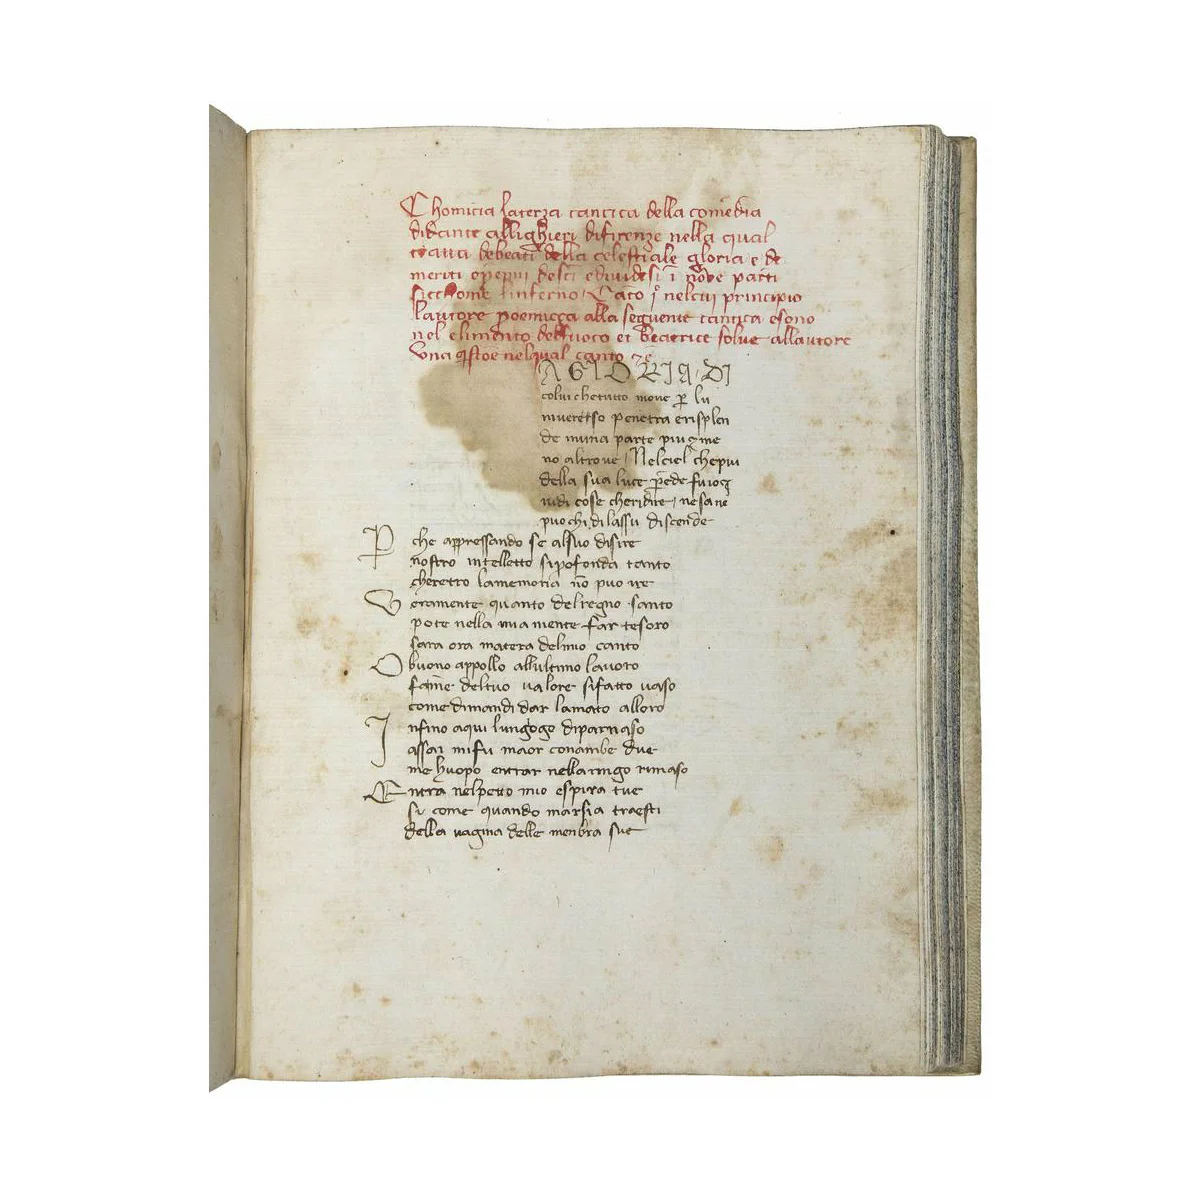 Chomicia laterza cantica della comedia
didante allighieri difirenze nella qual
tratta debeati della celestiale gloria e de
meriti epremii desci edividesi ī nove parti
sicchome linferno Cāto jº nelcui principio
lautore poemiçça alla seguente cantica esono
nel elimento delfuoco et beatrice solve allautore
una qstōe nelqual canto
A GLORIA DI
colui chetutto move p lu
niverso penetra erisplen
de inuna parte piu e me
no altrove Nelciel chepiu
della sua luce pēde fuio e
vidi cose cheridire nesa ne
puo chi dilassu discende
P che appressando se alsuo disire
nostro intelletto sipofonda tanto
cheretro lamemoria nō puo ire
Veramente quanto delregno santo
pote nella mia mente far tesoro
sara ora matera delmio canto
O buono appollo allultimo lavoro
fame deltuo valore sifatto vaso
come dimandi dar lamato alloro
Infino aqui lungogo diparnaso
assai mi fu maor conambe due
me huopo entrar nellaringo rimaso
Entra nelpetto mio espira tue
si come quando marsia traesti
della vagina delle menbra sue